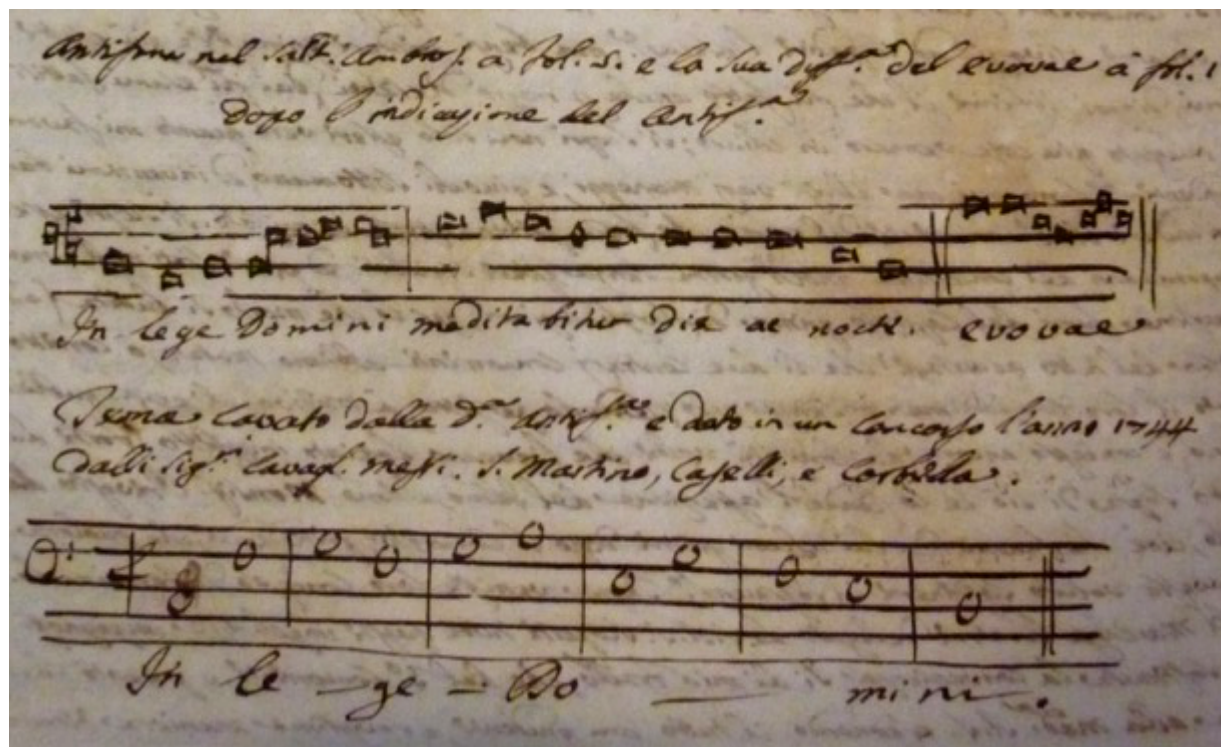 Antifona nel Salt: Ambros. a fol. 5. e la sua diff.ª del evovae a fol. 1
dopo l'indicazione del Antif.ª
In lege Domini meditabitur die ac nocte. evovae
Tema cavato dalla d.ª Antif.ª e dato in un concorso l'anno 1744
dalli Sig.ri Cavagl. S. Martino, Caselli, e Corbella.
In le - ge - Do — mi ni.